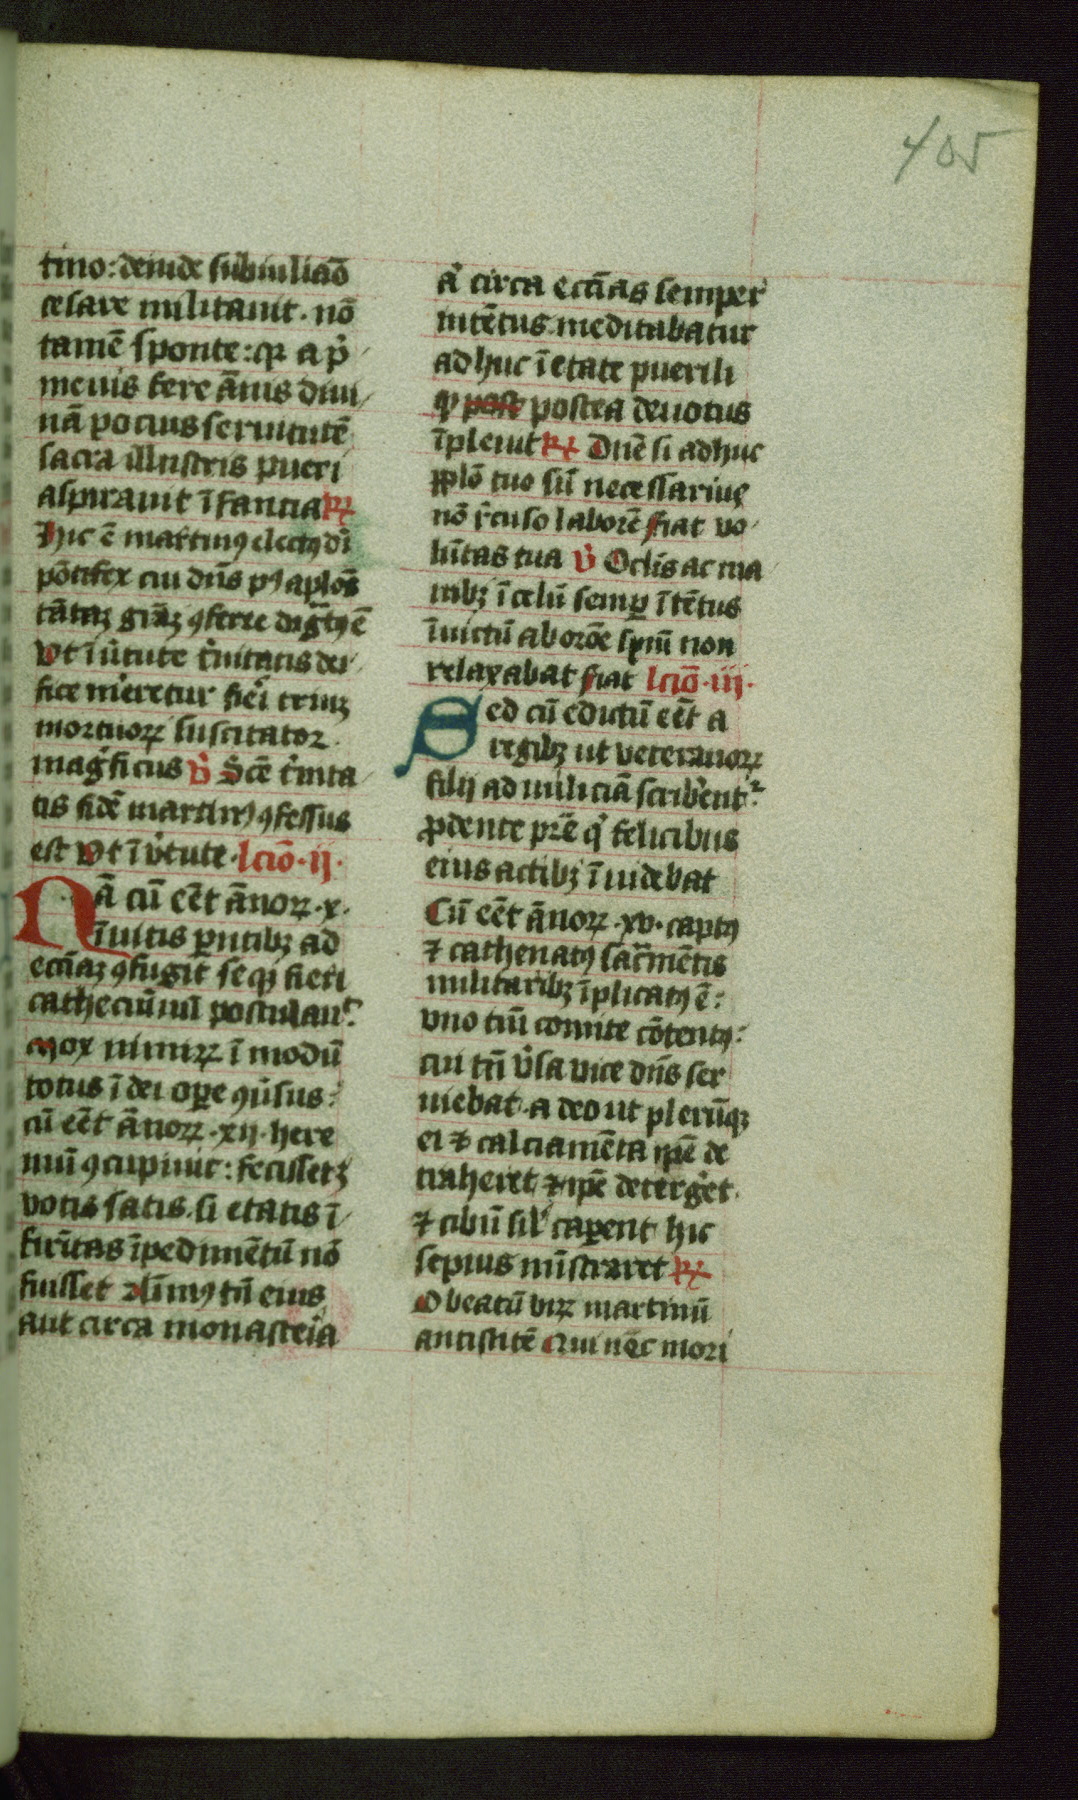 405
tino: deinde sub iuliaō
cesare militauit. nō
tamē sponte: qr a p̄
meuis fere ānis diui
nā pocius seruitutē
sacra illustris pueri
aspirauit īfancia R
Hic ē martinꝯ electꝯ di
pōtifex cui dn̄s pꝰ aplōs
tātaꝫ grāꝫ ꝯferre diḡtꝰ ē
Vt ī ũtute t̉nitatis dei
fice m̉eretur fieri triuꝫ
mortuoꝝ suscitator
mag̉ficus V̉ Scē t̉nita
tis fidē martinꝰ ꝯfessus
est Vt ī v̉tute. lcīo. ij.
Nā cū eēt ānoꝝ .x.
īuitis parētibꝫ ad
eccīaꝫ ꝯfugit seqꝫ fieri
cathecuminū postulauit
Mox mirū ī modū
totus ī dei ope ꝯũsus:
cū eēt ānoꝝ .xij. here
mū ꝯcupiuit: fecissetꝫ
votis satis. si etatis ī
firm̄tas īpedimētū nō
fuisset Aīmꝰ tn̄ eius
aut circa monasteria
aꝰ circa eccīas semper
intētus meditabatur
adhuc ī etate puerili
qꝫ post postea deuotus
īpleuit R Dnē si adhuc
pplō tuo sū necessariuꝰ
nō r̉cuso laborē fiat vo
lūtas tua V̉ Oclīs ac ma
nibꝫ ī celū semp ītētus
īuictū ab orōe spm̄ non
relaxabat fiat lcīo .iij.
Sed cū edictū eēt a
regibꝫ ut veteranoꝝ
filij ad miliciā scrib̉ent᷑
ꝓdente pr̄e qꝰ felicibus
eius actibꝫ īuidebat
Cū eēt ānoꝝ .xv. captꝰ
⁊ cathenatꝰ sac̄rmētis
militaribꝫ īplicatꝰ ē:
vno tm̄ comite cōtentꝰ:
cui tn̄ v̉sa vice dn̄s ser
uiebat. adeo ut plerūqꝫ
ei ⁊ calciamēta ipē de
traheret ⁊ ipē deterg̉et.
⁊ cibū sil̉ caperent hic
sepius mīstraret R
O beatū viꝝ martinū
antistitē Qui nec mori